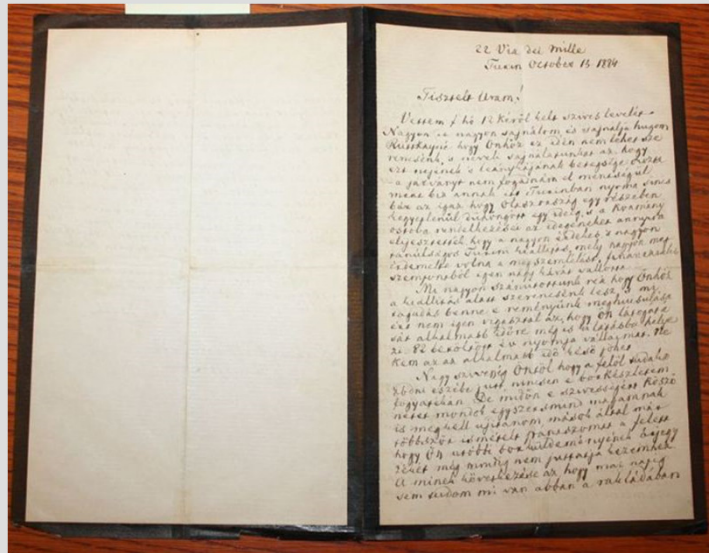 22 Via dei Mille
Turin October 13 1884
Tisztelt Uram!
Vettem f. hó 12 kéről kelt szives levelét.
Nagyon is nagyon sajnálom, és sajnálja hugom
Ruttkayné, hogy Önhöz ez idén nem lehet sze
rencsénk, s növeli sajnálatunkat az, hogy
ezt nejének s leánykájának betegsége okozta
a járványt nem fogadnám el mentségül
mert biz annak itt Turinban nyoma sincs
bár az igaz hogy Olaszország egy részében
kegyetlenül dühöngött egy ideig, s a Kormány
ostoba rendelkezései az idegeneket annyira
elijesztették hogy a nagyon érdekes s nagyon
tanulságos Turini kiállítás, mely nagyon meg
érdemelte volna a megszemlélést, financiális
szempontból igen nagy kárát vallotta.
Mi nagyon számítottunk reá hogy Önhöz
a kiállítás alatt szerencsénk lesz, s mi
tagadás benne e reményünk meghiusulása
ért nem igen vigasztal az, hogy Ön látogatá
sát alkalmasb időre még is kilátásba helye
zi. 82 betöltött év nyomja vállaimat. Ne
kem az az alkalmasb idő késő jöhet.
Nagy szivesség Öntől hogy a felől tudakozódni
eszébe jutt nincsen e bor készletem
fogyatékán. De midőn e szivességért köszö
netet mondok egyszersmind magamnak
is meg kell ujitanom, mások által már
többször ismételt panaszomat a felett
hogy Ön utóbbi bor küldeményének jegy
zékét még mindig nem juttatja kezemhez.
A minek következése az hogy mai napig
sem tudom mi van abban a rakládában